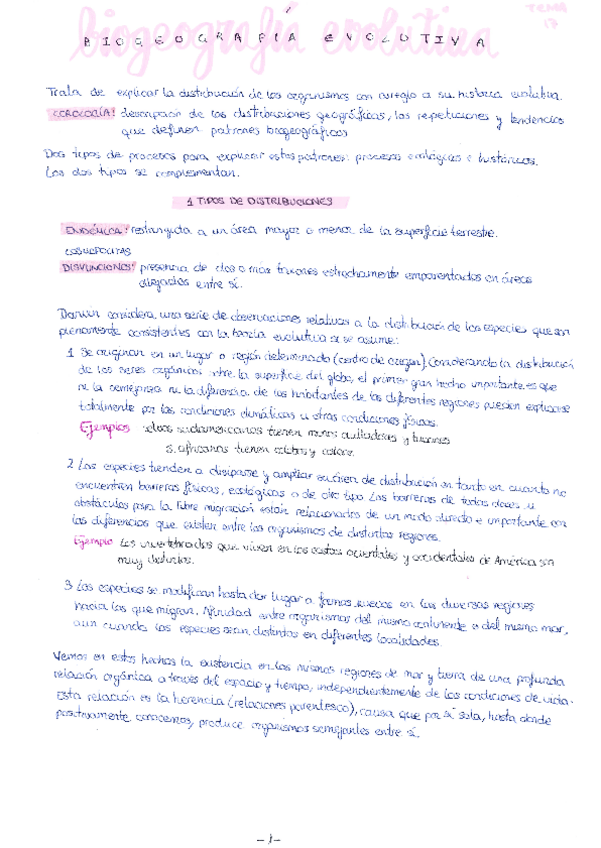 TEMA 17
biogeografía evolutiva
BIOGEOGRAFÍA EVOLUTIVA
Trata de explicar la distribución de los organismos con arreglo a su historia evolutiva.
COROLOGÍA: descripción de las distribuciones geográficas, las repeticiones y tendencias
que definen patrones biogeográficos
Dos tipos de procesos para explicar estos patrones: procesos ecológicos e históricos.
Los dos tipos se complementan.
1 TIPOS DE DISTRIBUCIONES
ENDÉMICA: restringida a un área mayor o menor de la superficie terrestre.
COSMOPOLITAS
DISYUNCIONES: presencia de dos o más taxones estrechamente emparentados en áreas
alejadas entre sí.
Darwin considera una serie de observaciones relativas a la distribución de las especies que son
plenamente consistentes con la teoría evolutiva si se asume:
1 Se originan en un lugar o región determinada (centro de origen). Considerando la distribución
de los seres orgánicos sobre la superficie del globo, el primer gran hecho importante es que
ni la semejanza ni la diferencia de los habitantes de las diferentes regiones pueden explicarse
totalmente por las condiciones climáticas u otras condiciones físicas.
Ejemplos selvas sudamericanas tienen monos aulladores y tucanes
S. africanas tienen
2 Las especies tienden a disiparse y ampliar su área de distribución en tanto en cuanto no
encuentren barreras físicas, ecológicas o de otro tipo. Las barreras de todas clases u
obstáculos para la libre migración están relacionados de un modo directo e importante con
las diferencias que existen entre los organismos de distintas regiones.
Ejemplo Los invertebrados que viven en las costas orientales y occidentales de América son
muy distintos.
3 Las especies se modifican hasta dar lugar a formas nuevas en las diversas regiones
hacia las que migran. Afinidad entre organismos del mismo continente o del mismo mar,
aun cuando las especies sean distintas en diferentes localidades.
Vemos en estos hechos la existencia en las mismas regiones de mar y tierra de una profunda
relación orgánica a través del espacio y tiempo, independientemente de las condiciones de vida.
Esta relación es la herencia (relaciones parentesco), causa que por sí sola, hasta donde
positivamente conocemos, produce organismos semejantes entre sí.
-1-